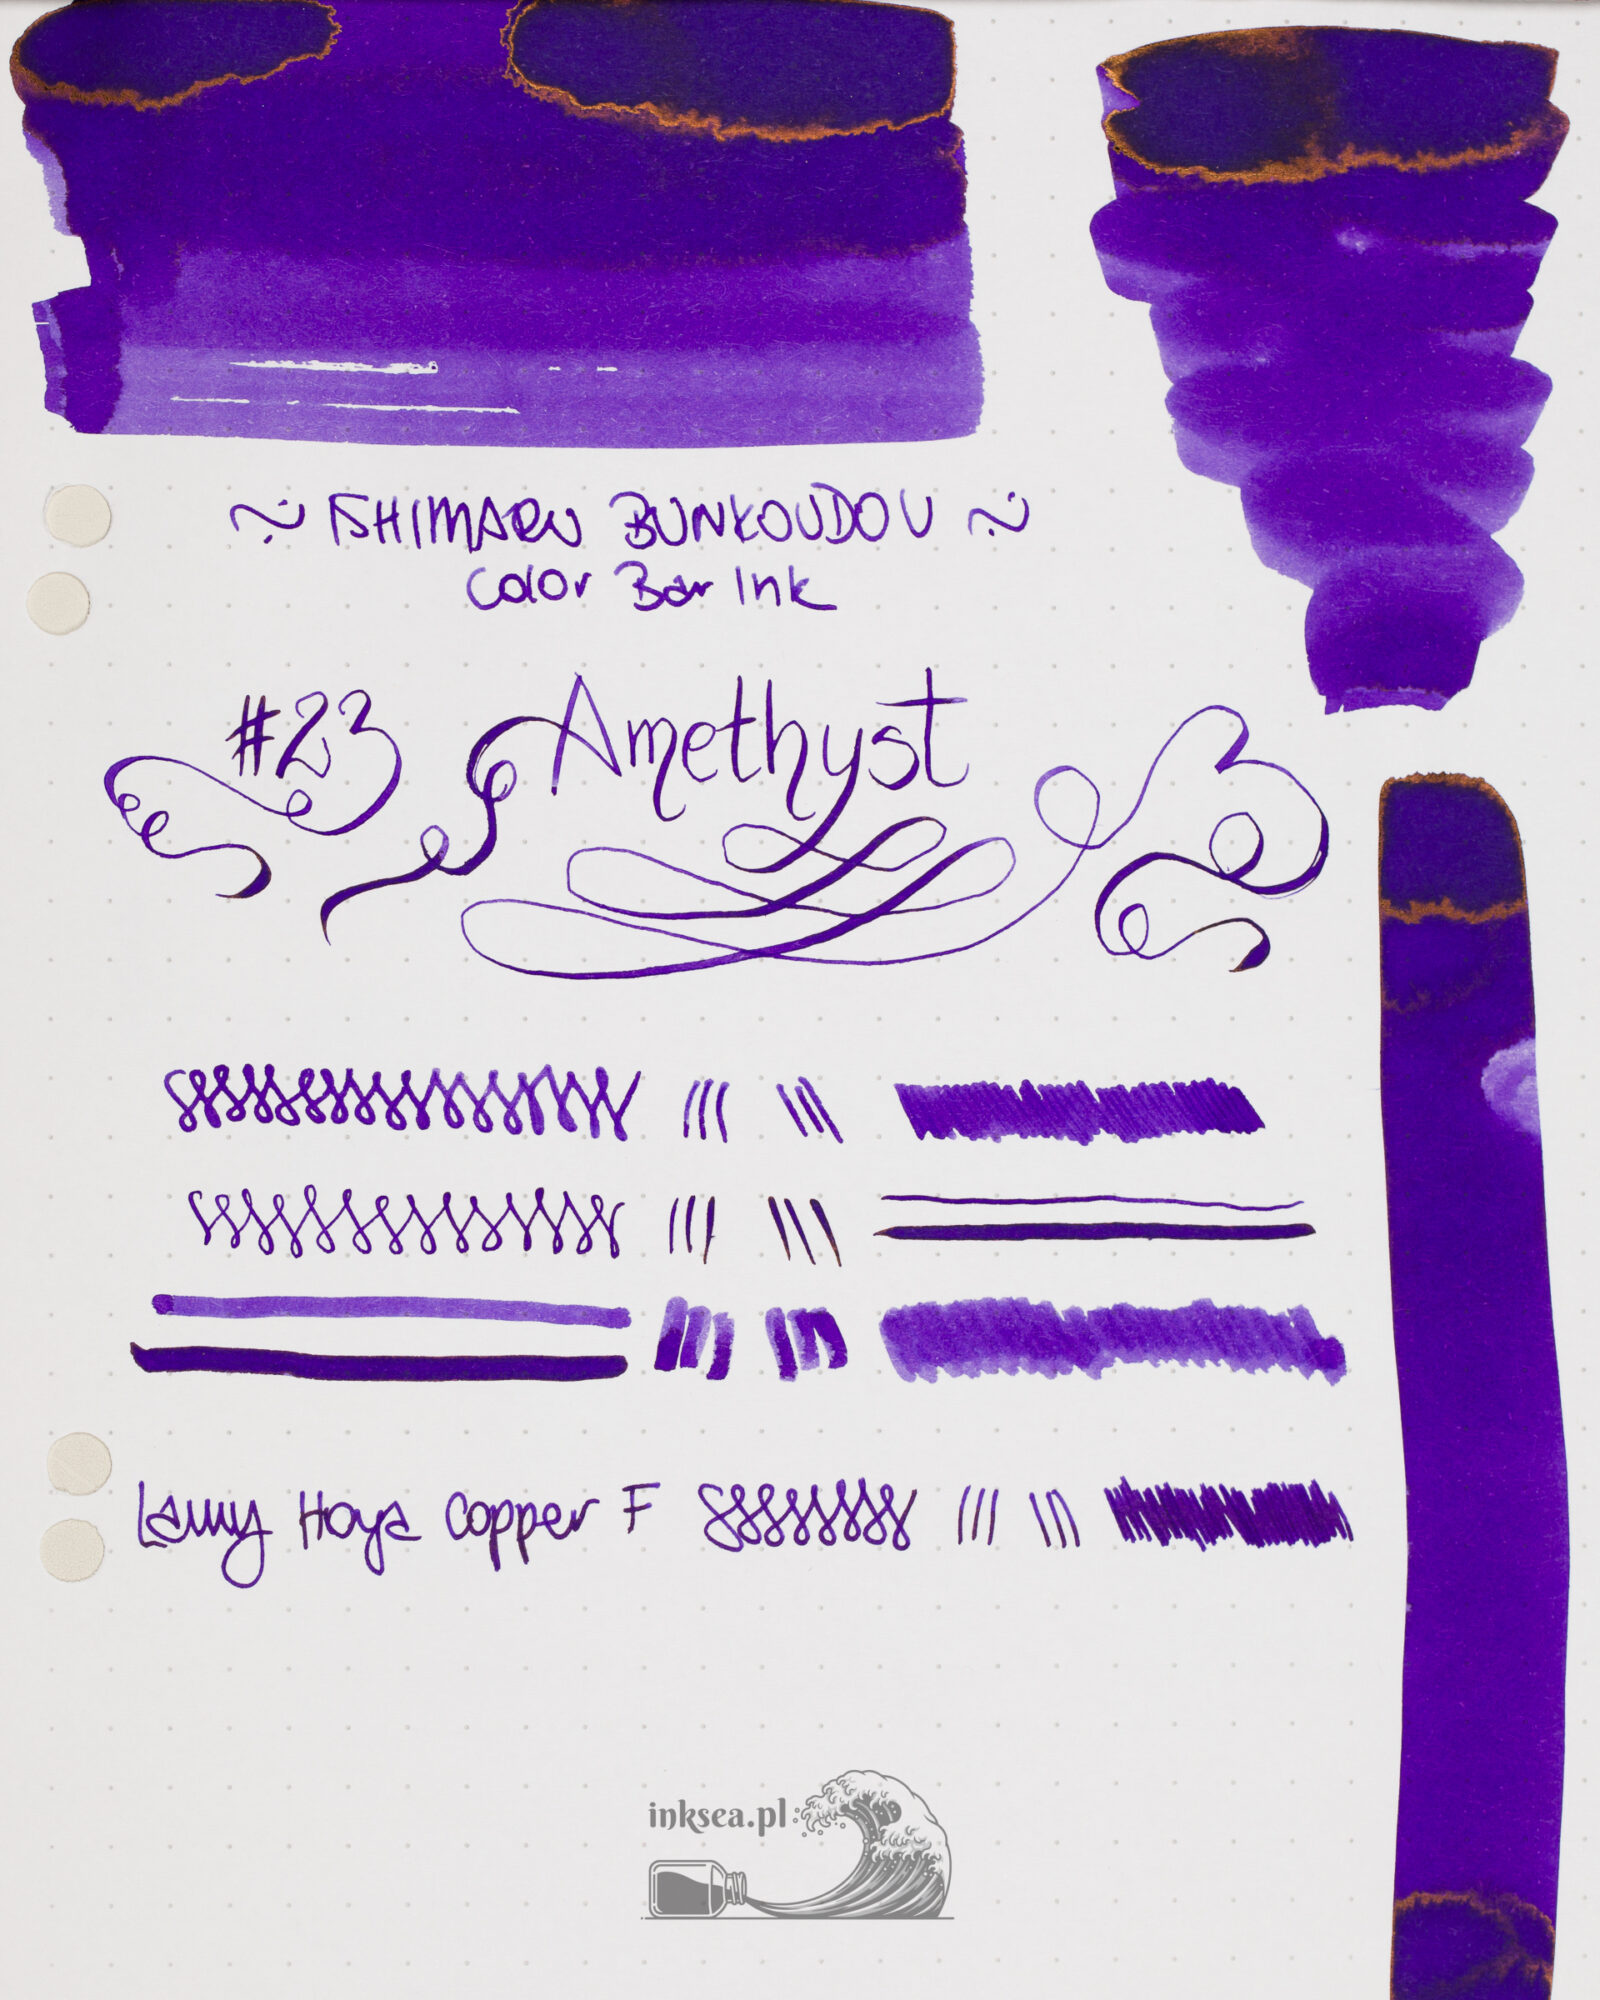 ~ ISHIMARU BUNKOUDOU ~
Color Bar Ink
#23 Amethyst
Lamy Hoya Copper F
inksea.pl